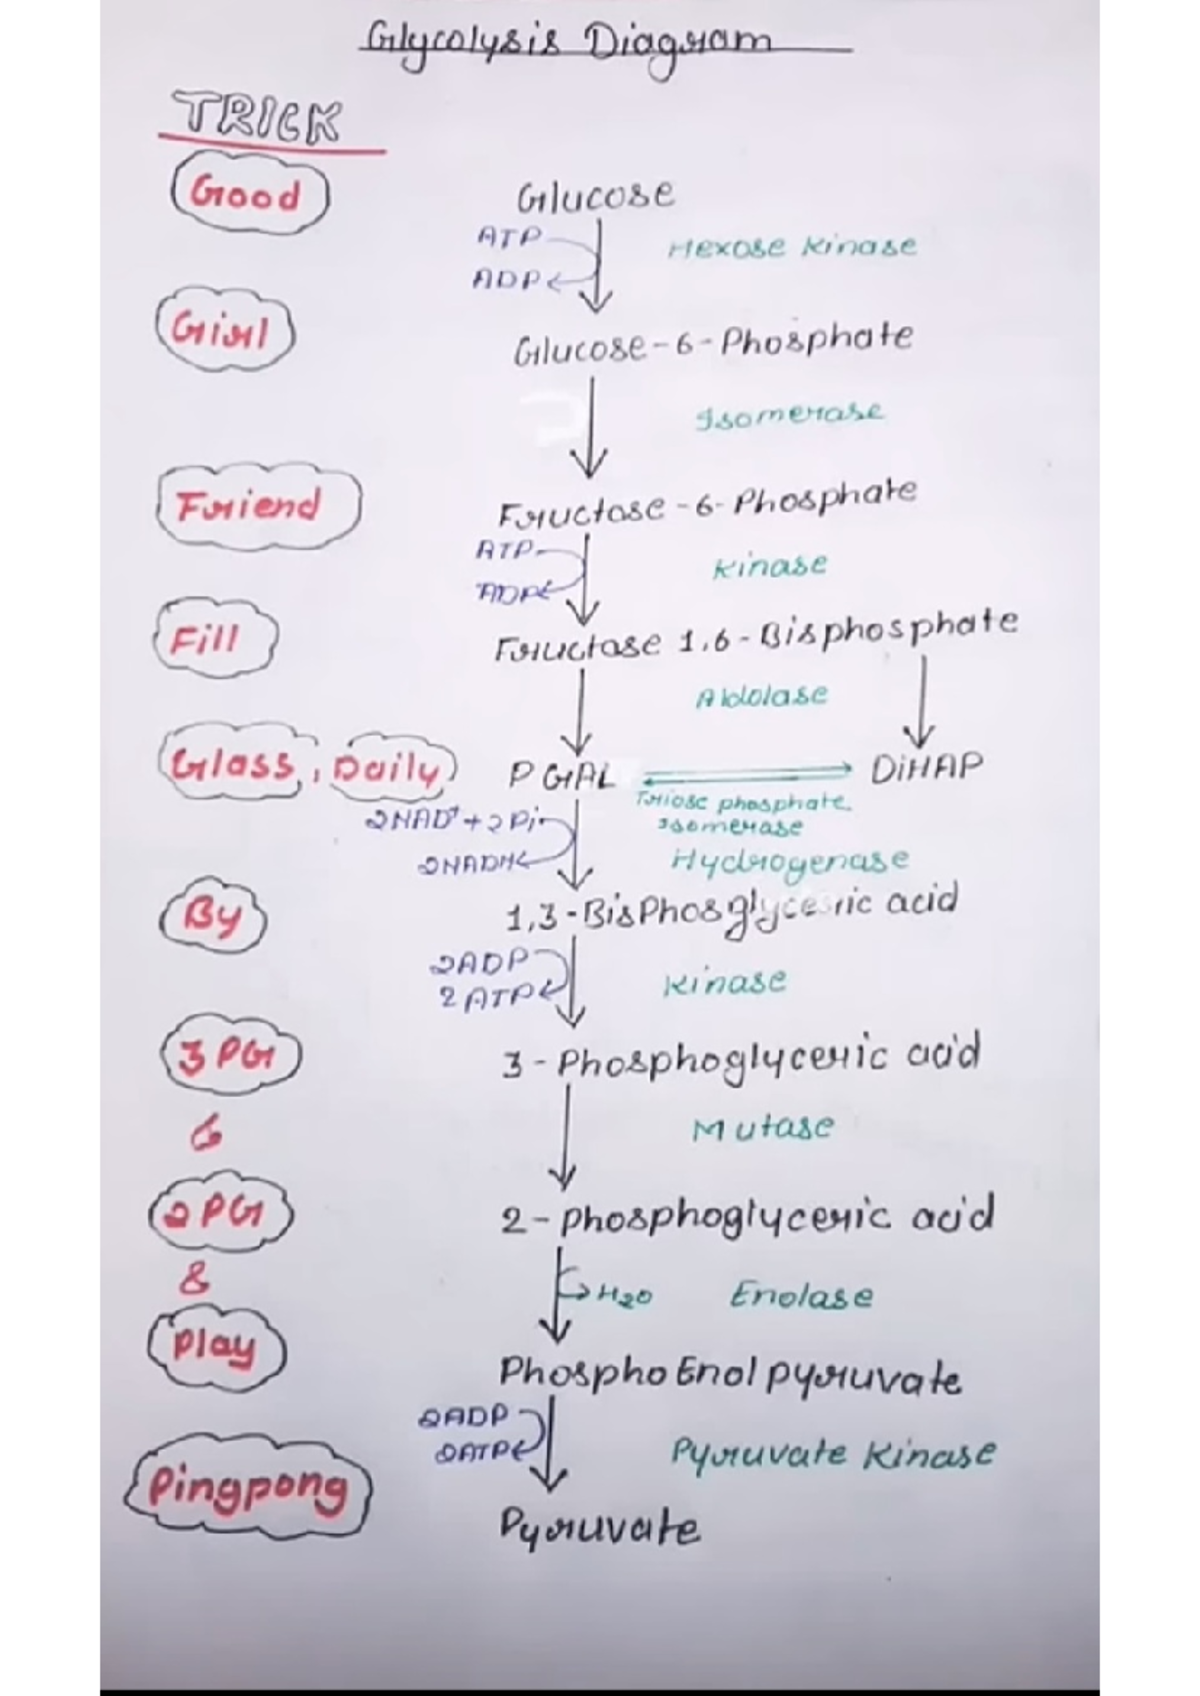 Glycolysis Diagram
TRICK
Good
Glucose
ATP
Hexose Kinase
ADP
Girl
Glucose-6-Phosphate
Isomerase
Friend
Fructose-6-Phosphate
ATP
Kinase
ADP
Fill
Fructose 1,6-Bisphosphate
Aldolase
Glass, Daily
PGAL
DiHAP
Triose phosphate
Isomerase
2NAD⁺+2Pi
2NADH
Hydrogenase
By
1,3-BisPhosglyceric acid
2ADP
2ATP
Kinase
3PG
3-Phosphoglyceric acid
Mutase
2PG
2-phosphoglyceric acid
&
H2O
Enolase
Play
Phospho Enol pyruvate
2ADP
2ATP
Pyruvate Kinase
Pingpong
Pyruvate